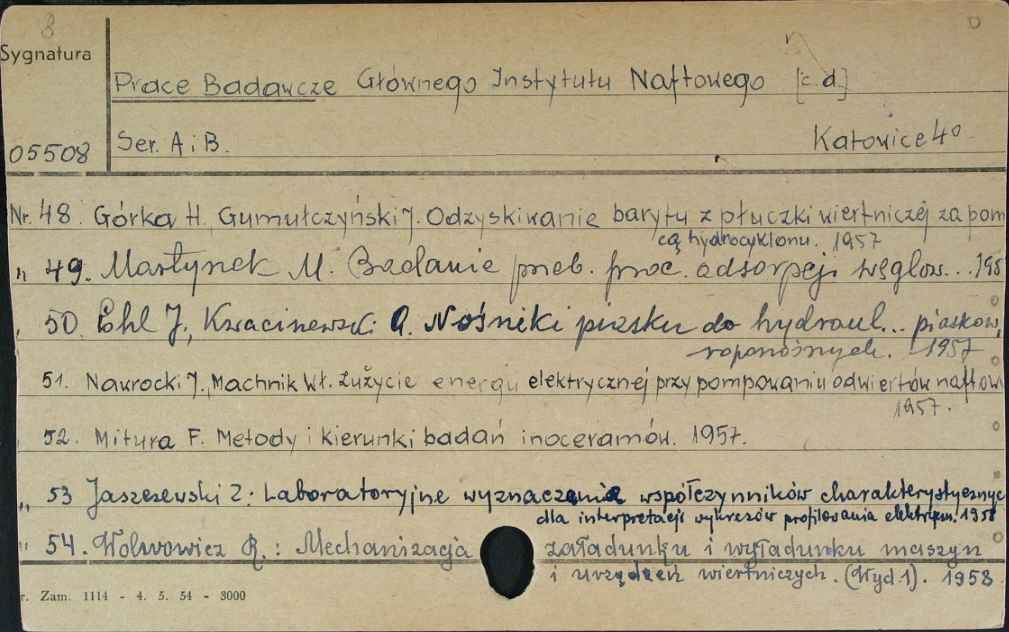 B
Sygnatura
Prace Badawcze Głównego Instytutu Naftowego [c.d.]
05508
Ser. A i B. Katowice 4°
Nr. 48. Górka H., Gumułczyński J. Odzyskiwanie barytu z płuczki wiertniczej za pom
cą hydrocyklonu. 1957
" 49. Martynek M. Badanie proc. adsorpcji węglow... 195
50. Ehl J., Kwacinewski A. Nośniki piasku do hydraul... piasków,
roponośnych. 1957
51. Nawrocki J., Machnik Wł. Zużycie energii elektrycznej przy pompowaniu odwiertów naftow
1957.
52. Mitura F. Metody i kierunki badań inoceramów. 1957.
" 53 Jaszezewski Z: Laboratoryjne wyznaczania współczynników charakterystycznyc
dla interpretacji wykresów profilowania elektrycm. 1958
" 54. Wolwowicz R.: Mechanizacja załadunku i wyładunku maszyn
i urządzeń wiertniczych. (Wyd. 1). 1958.
r. Zam. 1114 - 4. 5. 54 - 3000